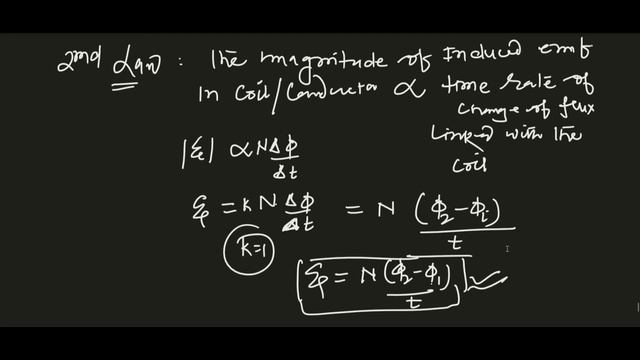 2nd Law : The magnitude of Induced emf
in Coil/Conductor ∝ time rate of
change of flux
Linked with the
coil
|ξ| ∝ N Δϕ/Δt
ξ = K N Δϕ/Δt = N (ϕ2 - ϕi)/t
K=1
ξ = N (ϕ2 - ϕ1)/t